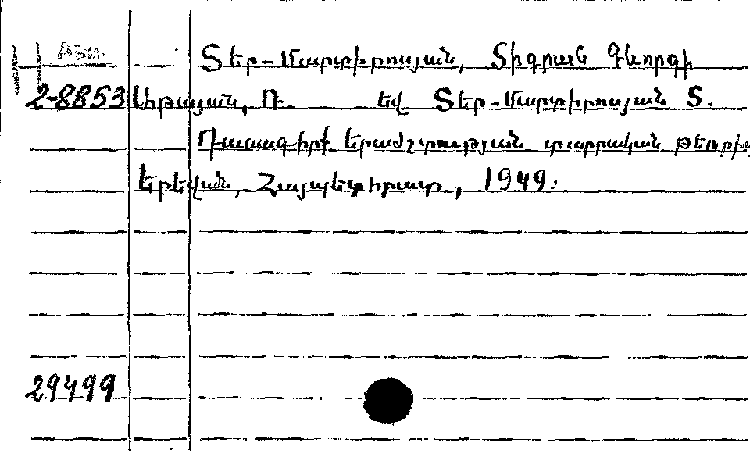 Տեր-Մարտիրոսյան, Տիգրան Գևորգի
2-8853 Աթայան, Ռ. եվ Տեր-Մարտիրոսյան Տ.
Դասագիրք երաժշտության տարրական թեորիա
Երեվան, Հայպետհրատ, 1949.
29499